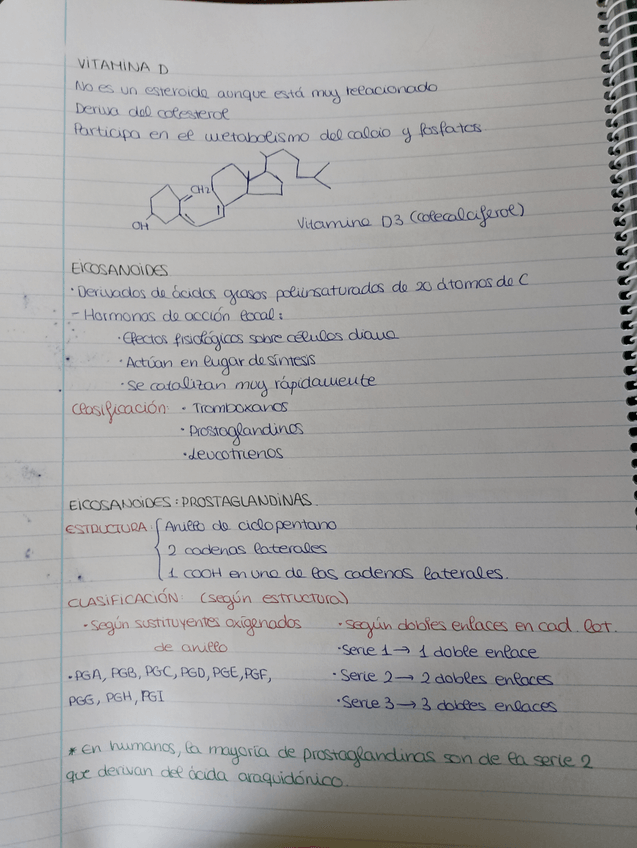 VITAMINA D
No es un esteroide aunque está muy relacionado
Deriva del colesterol
Participa en el metabolismo del calcio y fosfatos
CH2
OH
Vitamina D3 (colecalciferol)
EICOSANOIDES
· Derivados de ácidos grasos poliinsaturados de 20 átomos de C
- Hormonas de acción local:
· Efectos fisiológicos sobre células diana
· Actúan en lugar de síntesis
· Se catalizan muy rápidamente
Clasificación: · Tromboxanos
· Prostaglandinas
· Leucotrienos
EICOSANOIDES: PROSTAGLANDINAS
ESTRUCTURA: { Anillo de ciclopentano
2 cadenas laterales
1 COOH en una de las cadenas laterales.
CLASIFICACIÓN: (según estructura)
· Según sustituyentes oxigenados de anillo
· PGA, PGB, PGC, PGD, PGE, PGF,
PGG, PGH, PGI
· Según dobles enlaces en cad. lat.
· Serie 1 → 1 doble enlace
· Serie 2 → 2 dobles enlaces
· Serie 3 → 3 dobles enlaces
* En humanos, la mayoría de prostaglandinas son de la serie 2
que derivan del ácido araquidónico.